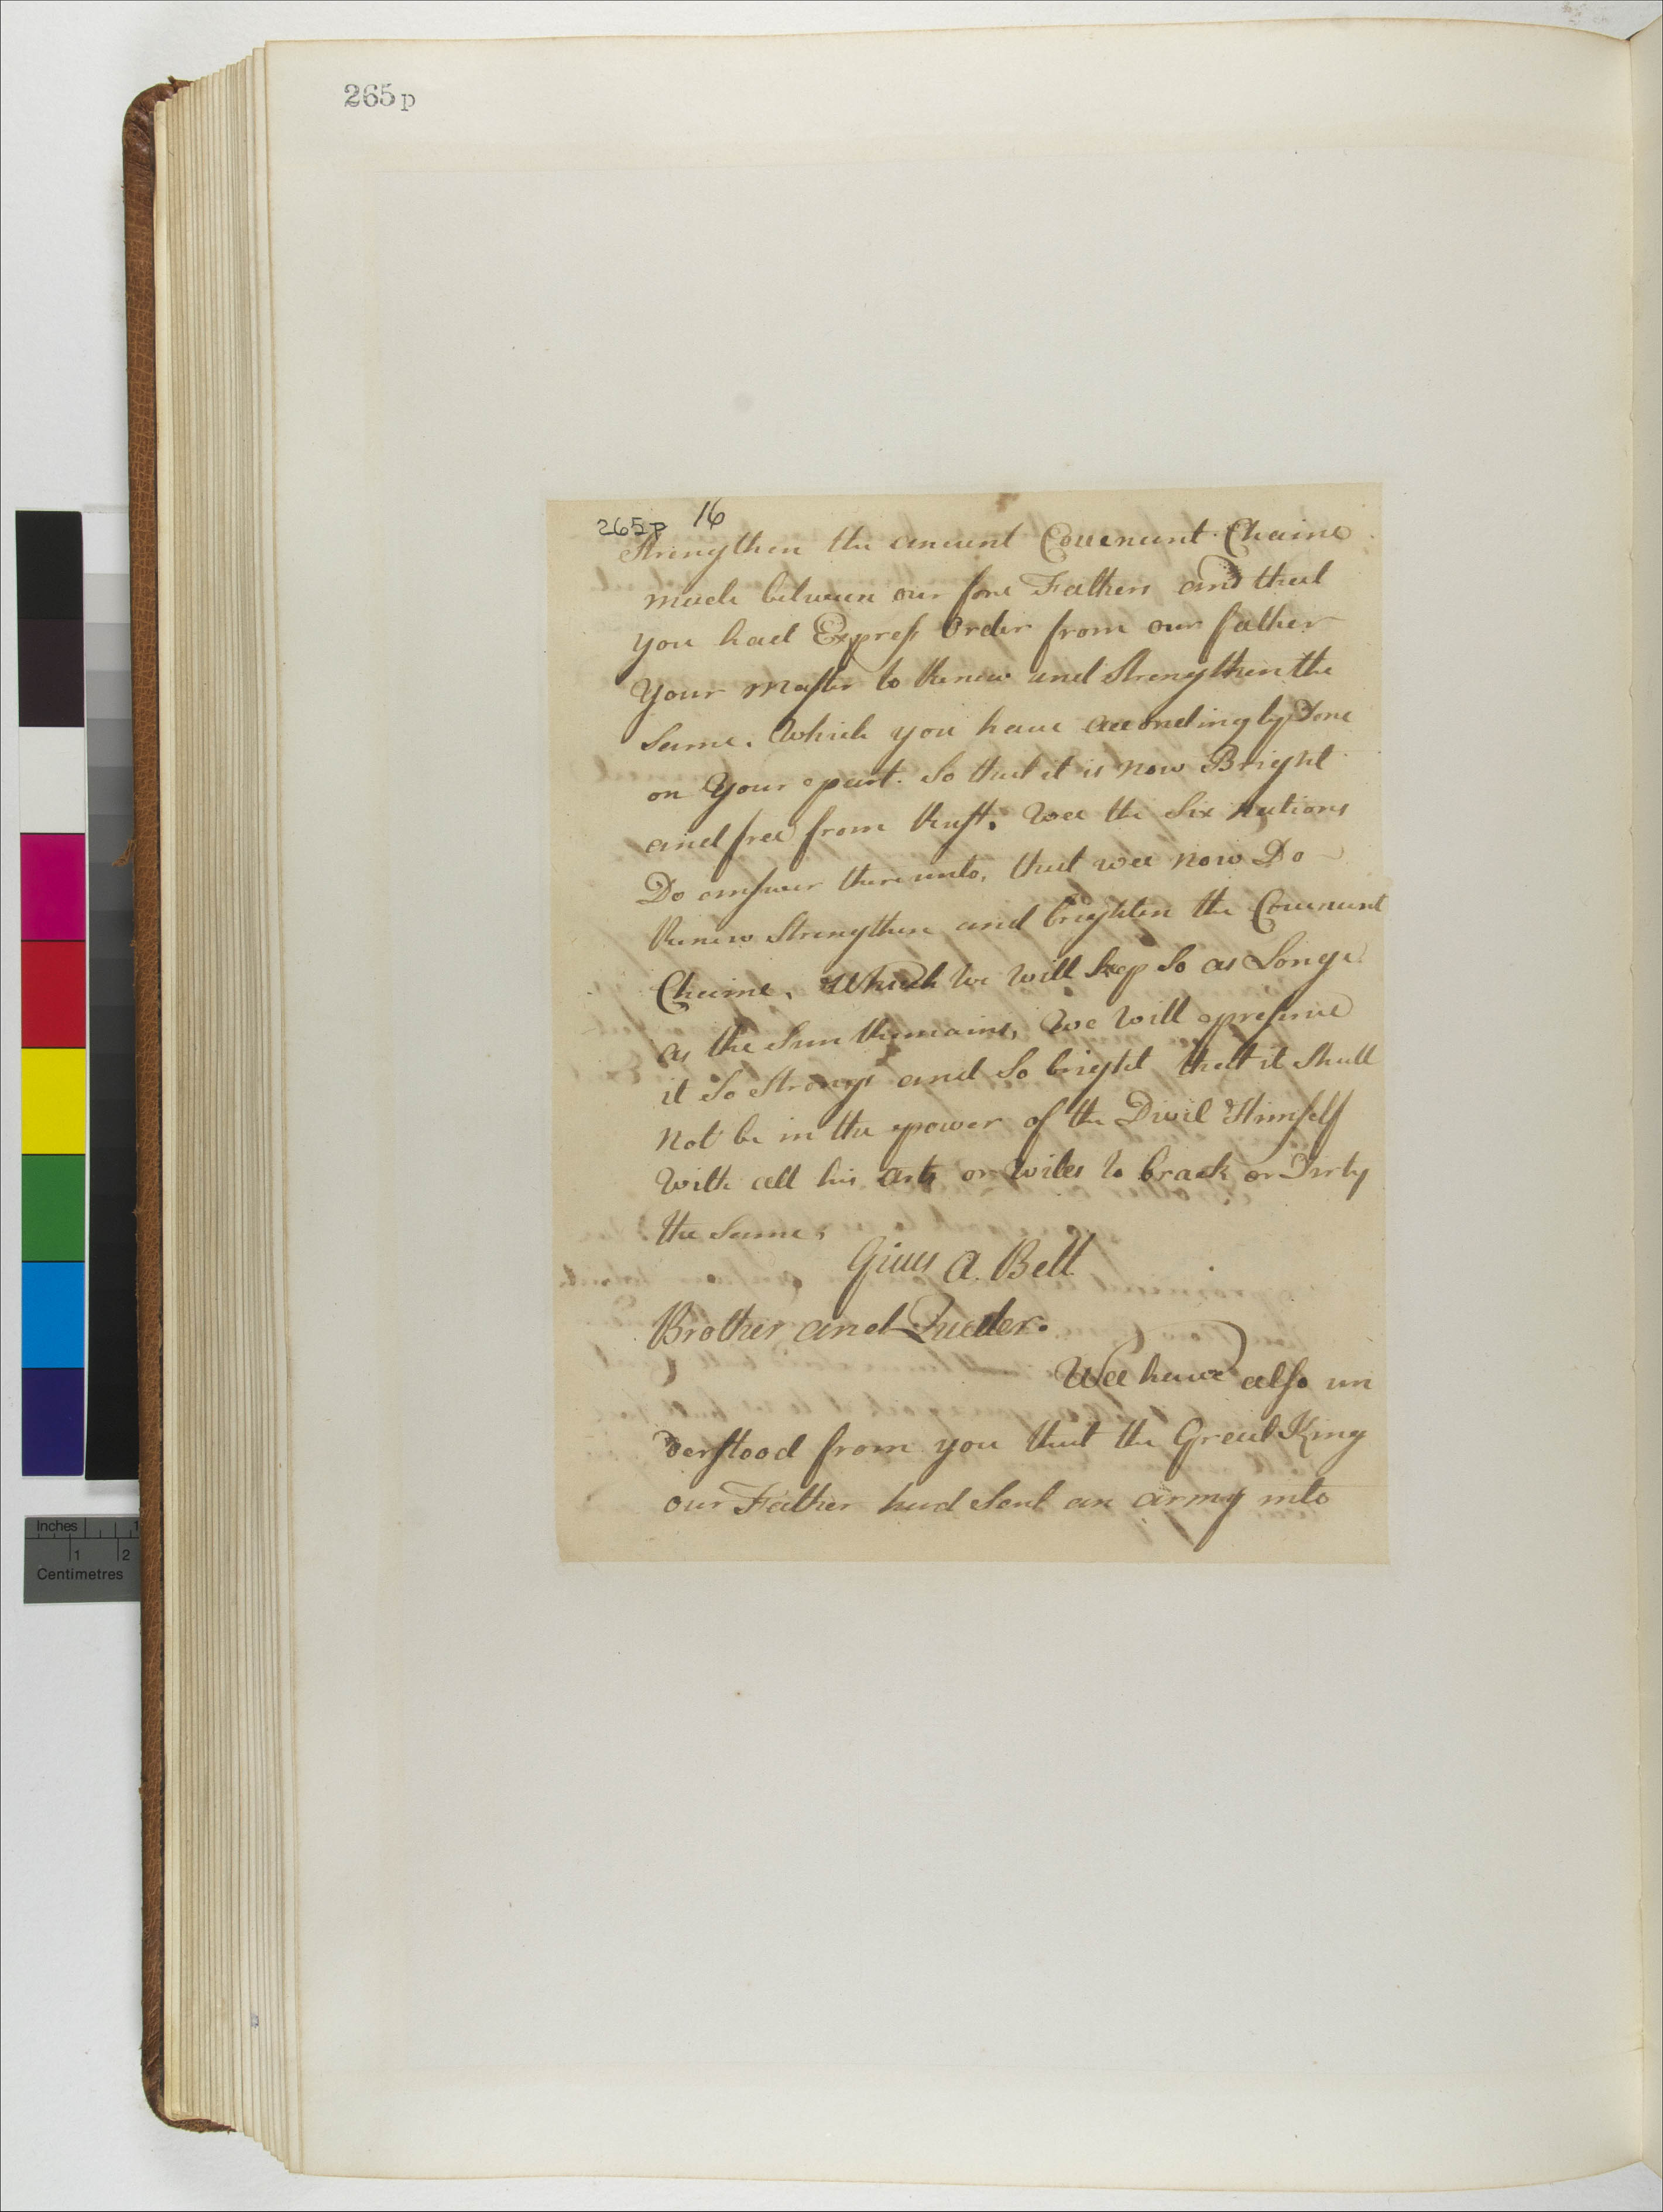 265p
265p 16
Strengthen the ancient Couenant Chaine
made between our fore Fathers and that
you had Express Order from our father
Your Master to Renew and Strengthen the
Same. Which you have accordingly Done
on Your part. So that it is now Bright
and free from Rust. Wee the Six Nations
Do answer thereunto, that wee now Do
Renew Strengthen and brighten the Couenant
Chaine, Which We Will keep So as Longe
as the Sun Remains, We Will preserve
it So Strong and So bright that it Shall
Not be in the power of the Divil Himself
With all his arts or Wiles to brack or Dirty
the Same,
Gives A. Belt
Brother and Queder.
Wee have also un
derstood from you that the Great King
our Father had Sent an army into
Inches 1
1 2
Centimetres